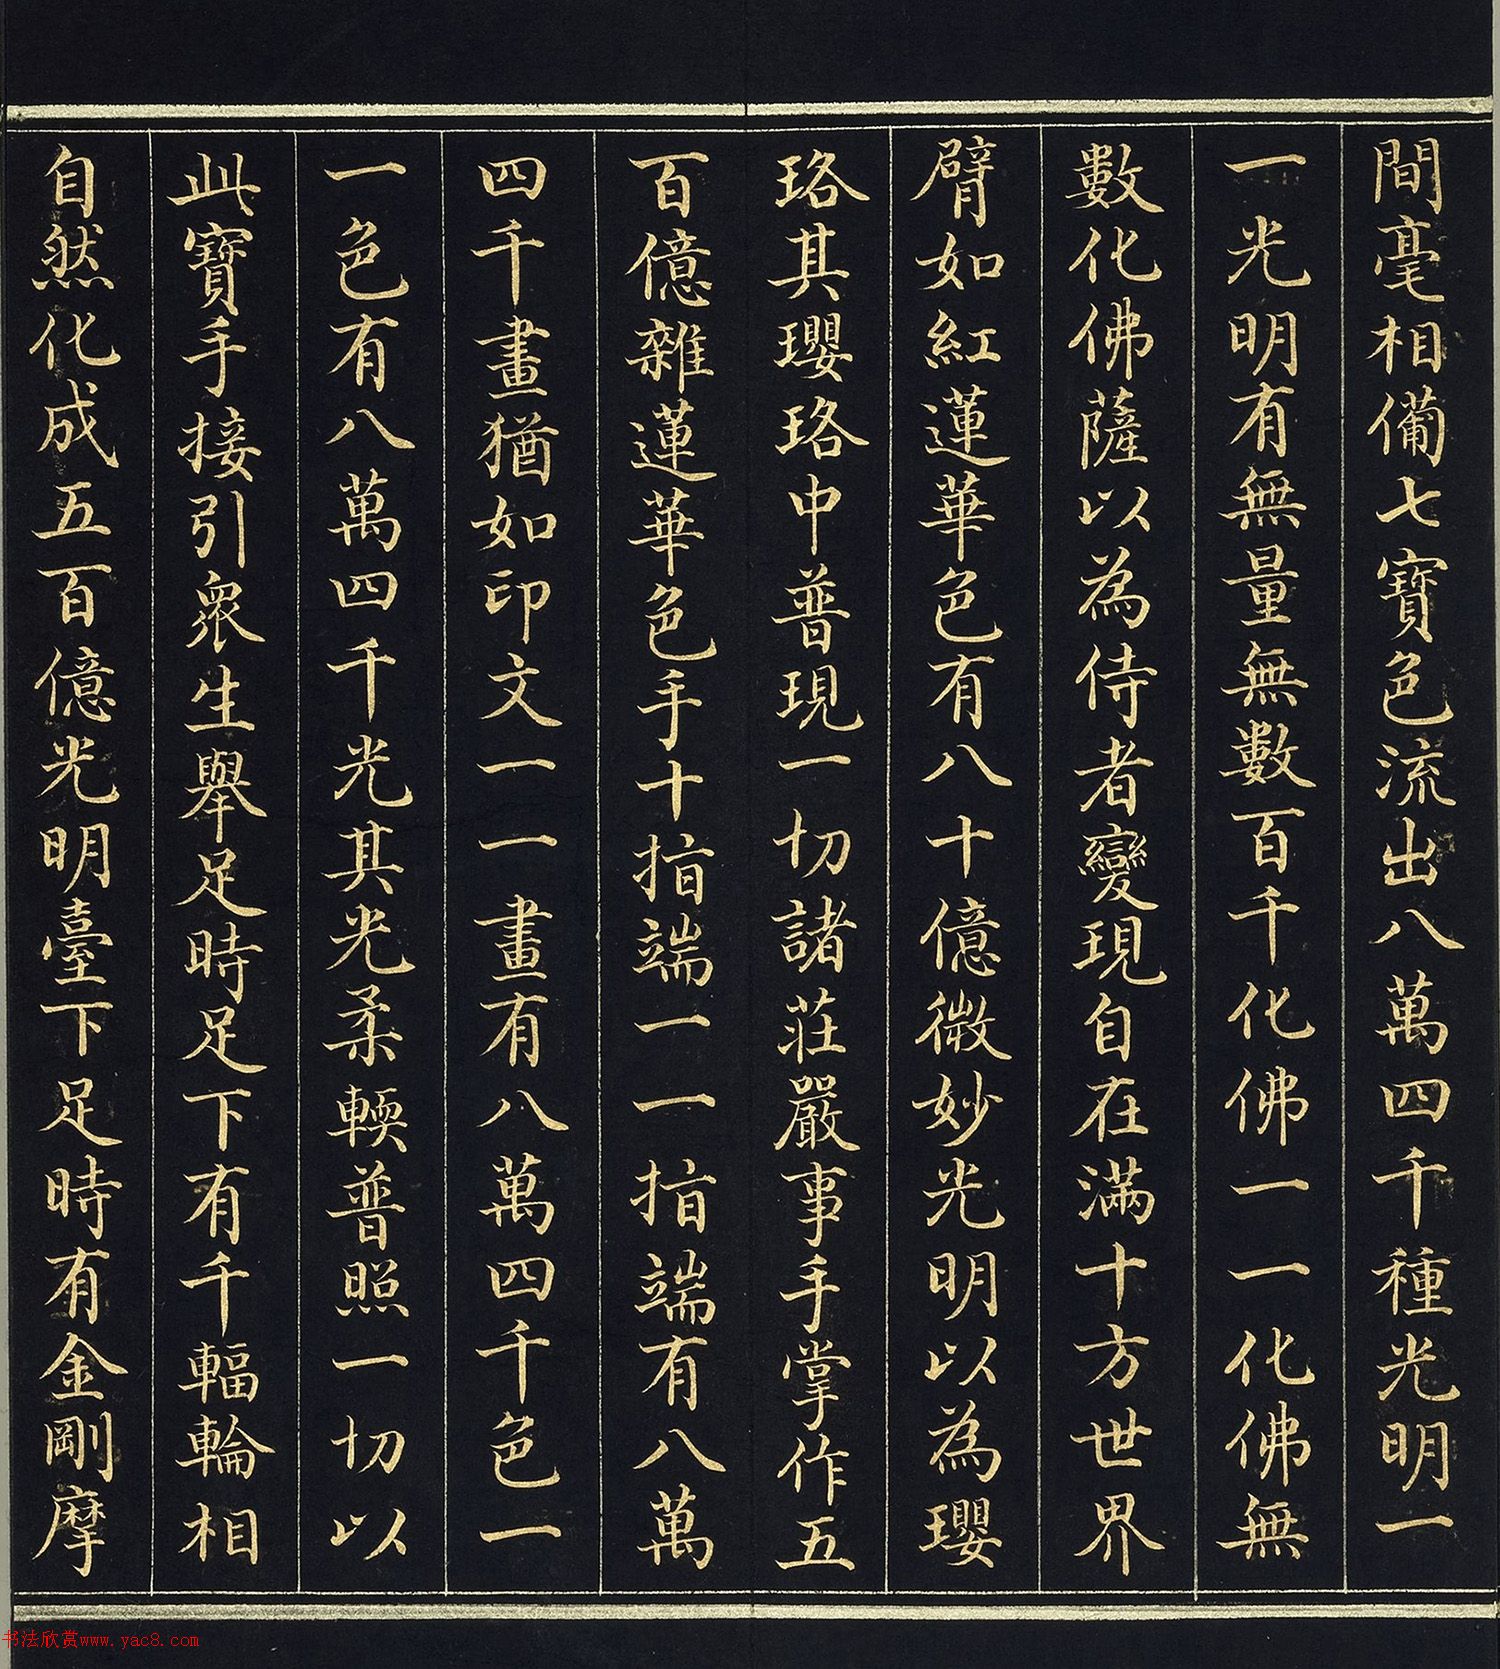 間毫相備七寶色流出八萬四千種光明一
一光明有無量無數百千化佛一一化佛無
數化佛薩以為侍者變現自在滿十方世界
臂如紅蓮華色有八十億微妙光明以為瓔
珞其瓔珞中普現一切諸莊嚴事手掌作五
百億雜蓮華色手十指端一一指端有八萬
四千畫猶如印文一一畫有八萬四千色一
一色有八萬四千光其光柔輭普照一切以
此寶手接引衆生舉足時足下有千輻輪相
自然化成五百億光明臺下足時有金剛摩
书法欣赏www.yac8.com